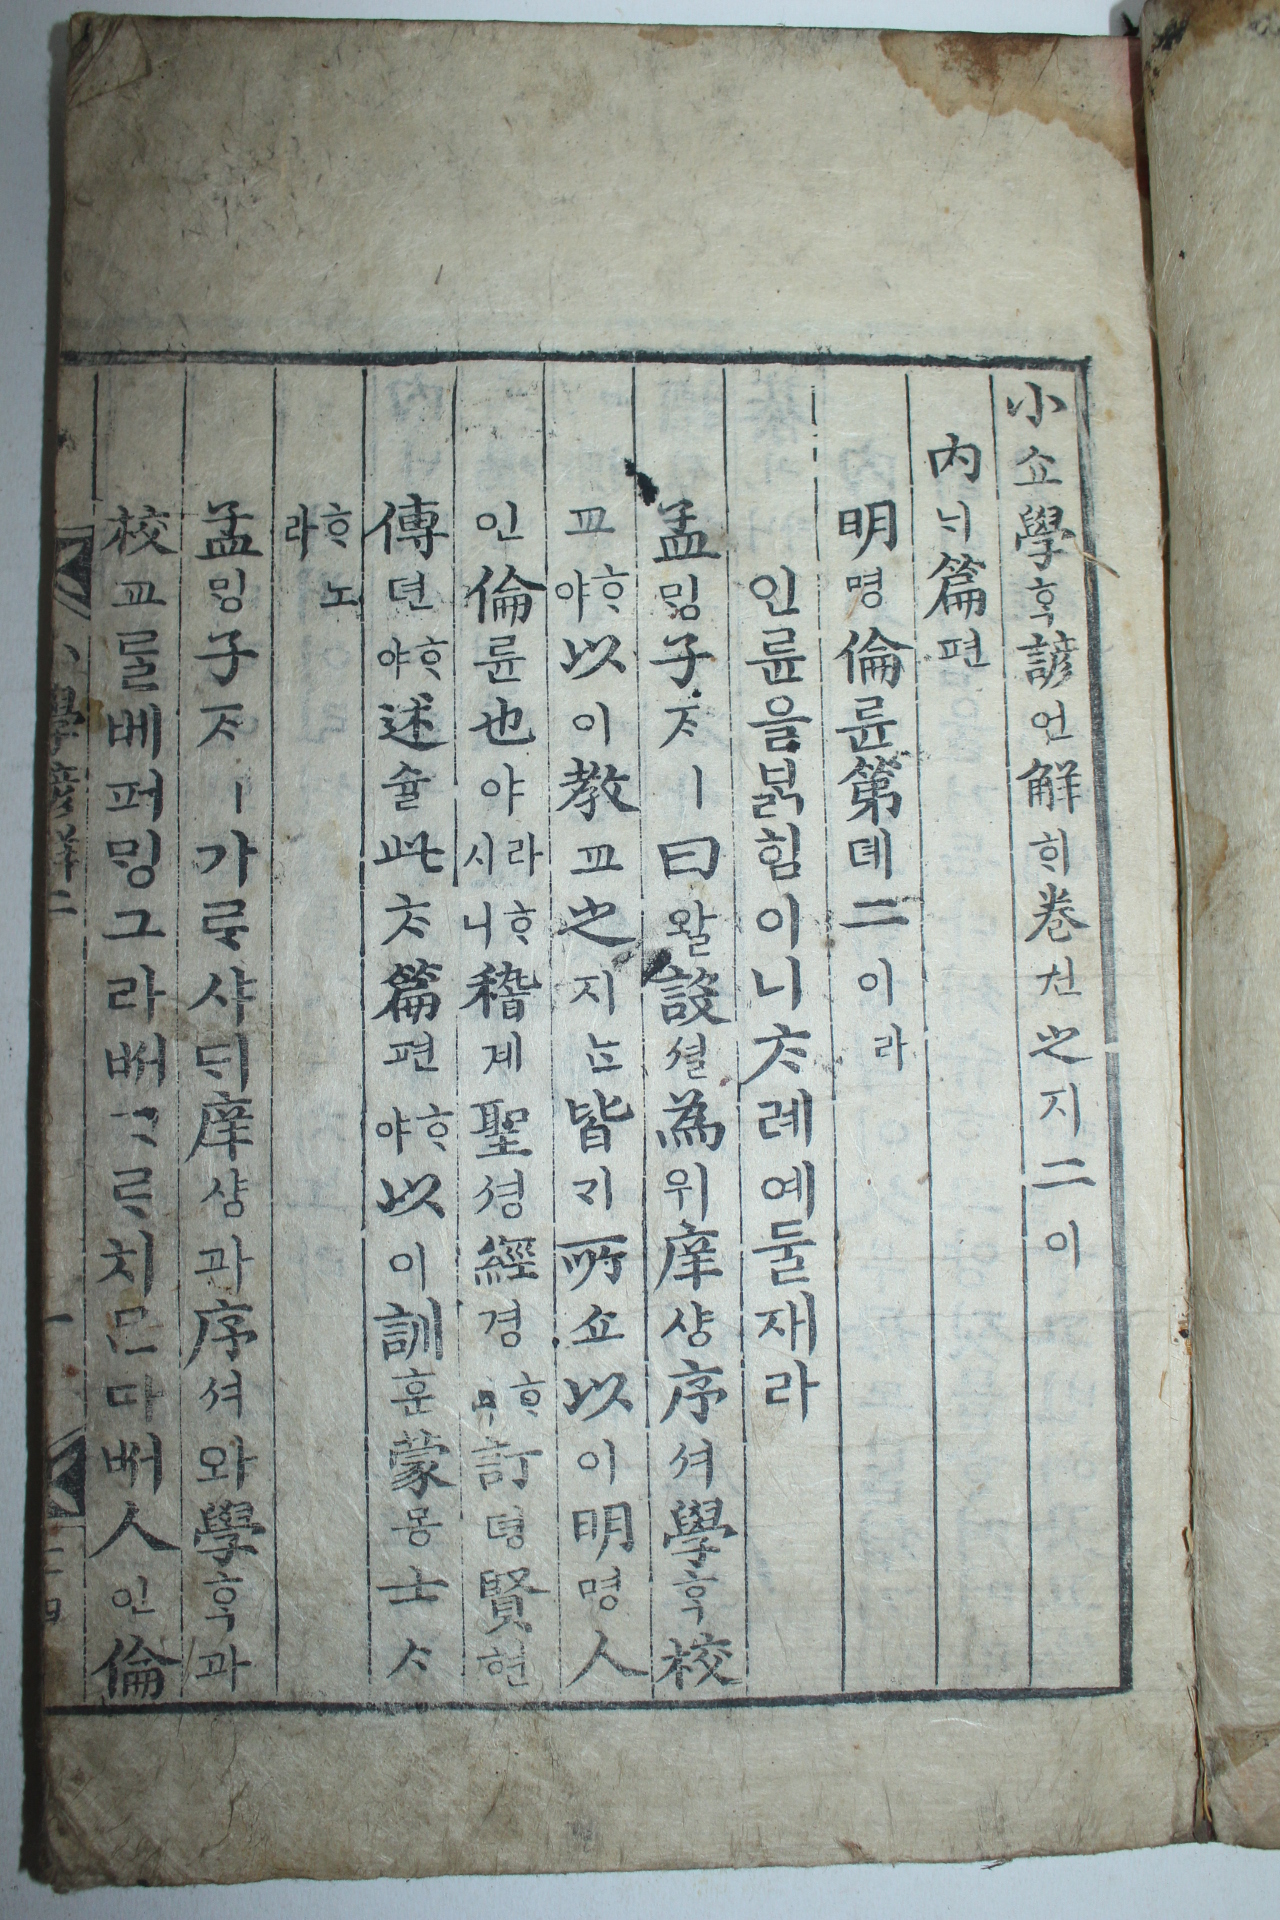 小쇼學ᄒᆞᆨ諺언解ᄒᆡ卷권之지二이
內ᄂᆡ篇편
明명倫륜第뎨二이라
인륜을ᄇᆞᆰ힘이니ᄎᆞ례예둘재라
孟밍子ᄌᆞㅣ曰왈設셜爲위庠샹序셔學ᄒᆞᆨ校
교ᄒᆞ야以이敎교之지ᄂᆞᆫ皆ᄀᆡ所쇼以이明명人
인倫륜也야라ᄒᆞ시니稽계聖셩經경ᄒᆞ며訂뎡賢현
傳뎐ᄒᆞ야述슐此ᄎᆞ篇편ᄒᆞ야以이訓훈蒙몽士ᄉᆞ
ᄒᆞ노라
孟밍子ᄌᆞㅣ가ᄅᆞ샤ᄃᆡ庠샹과序셔와學ᄒᆞᆨ과
校교를베퍼밍그라ᄡᅥᄀᆞᄅᆞ치ᄆᆞᆫ다ᄡᅥ人인倫
小學諺解二 一